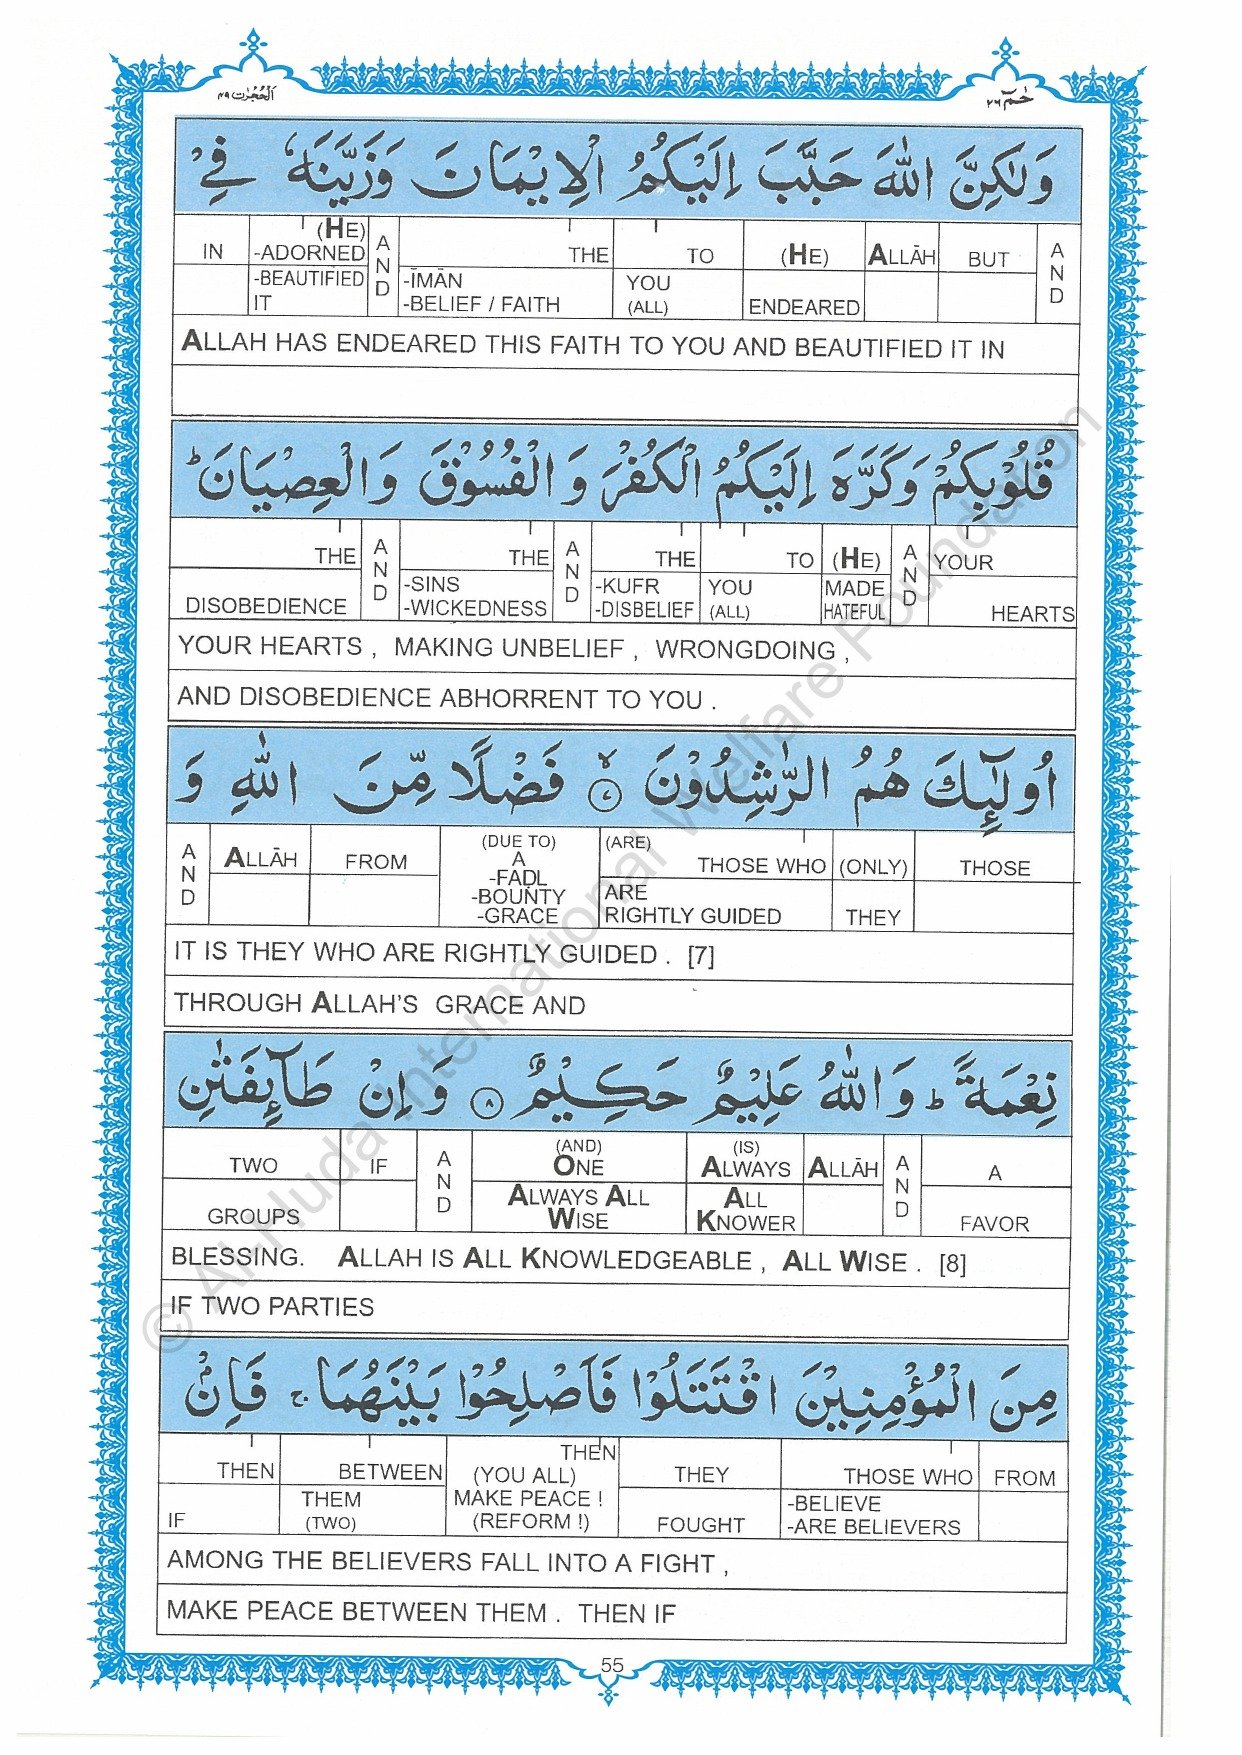 حٰمٓ ٢٦
اَلْحُجُرٰت ٤٩
وَلٰكِنَّ اللّٰهَ حَبَّبَ اِلَيْكُمُ الْاِيْمَانَ وَزَيَّنَهٗ فِيْ
IN (HE) -ADORNED AND THE TO (HE) ALLĀH BUT AND
-BEAUTIFIED IT -ĪMĀN -BELIEF / FAITH YOU (ALL) ENDEARED
ALLAH HAS ENDEARED THIS FAITH TO YOU AND BEAUTIFIED IT IN
قُلُوْبِكُمْ وَكَرَّهَ اِلَيْكُمُ الْكُفْرَ وَالْفُسُوْقَ وَالْعِصْيَانَ ؕ
THE AND THE AND THE TO (HE) AND YOUR
DISOBEDIENCE -SINS -WICKEDNESS -KUFR -DISBELIEF YOU (ALL) MADE HATEFUL HEARTS
YOUR HEARTS , MAKING UNBELIEF , WRONGDOING ,
AND DISOBEDIENCE ABHORRENT TO YOU .
اُولٰٓئِكَ هُمُ الرّٰشِدُوْنَ ۙ ٧ فَضْلًا مِّنَ اللّٰهِ وَ
AND ALLĀH FROM (DUE TO) A -FADL -BOUNTY -GRACE (ARE) THOSE WHO (ONLY) THOSE
ARE RIGHTLY GUIDED THEY
IT IS THEY WHO ARE RIGHTLY GUIDED . [7]
THROUGH ALLAH'S GRACE AND
نِعْمَةً ؕ وَاللّٰهُ عَلِيْمٌ حَكِيْمٌ ٨ وَاِنْ طَآئِفَتٰنِ
TWO IF AND (AND) ONE (IS) ALWAYS ALLĀH AND A
GROUPS ALWAYS ALL WISE ALL KNOWER FAVOR
BLESSING. ALLAH IS ALL KNOWLEDGEABLE , ALL WISE . [8]
IF TWO PARTIES
مِنَ الْمُؤْمِنِيْنَ اقْتَتَلُوْا فَاَصْلِحُوْا بَيْنَهُمَا ۚ فَاِنْۢ
THEN BETWEEN THEN (YOU ALL) THEY THOSE WHO FROM
IF THEM (TWO) MAKE PEACE ! (REFORM !) FOUGHT -BELIEVE -ARE BELIEVERS
AMONG THE BELIEVERS FALL INTO A FIGHT ,
MAKE PEACE BETWEEN THEM . THEN IF
55
© Al-Huda International Welfare Foundation